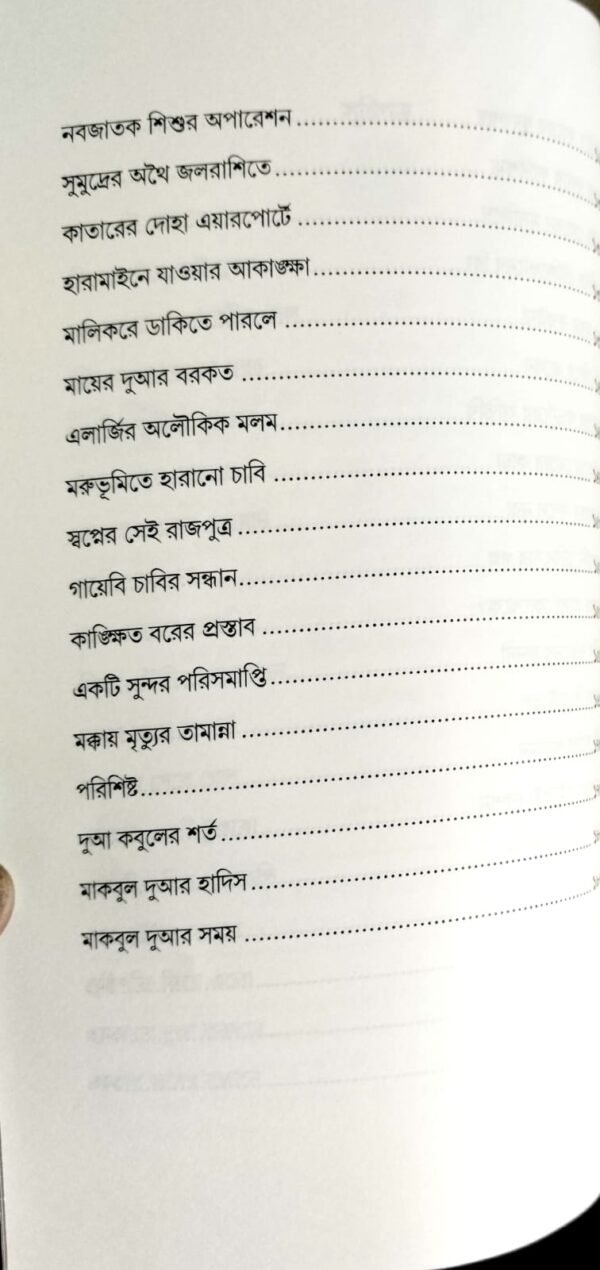 নবজাতক শিশুর অপারেশন
সুমুদ্রের অথৈ জলরাশিতে
কাতারের দোহা এয়ারপোর্টে
হারামাইনে যাওয়ার আকাঙ্ক্ষা
মালিকরে ডাকিতে পারলে
মায়ের দুআর বরকত
এলার্জির অলৌকিক মলম
মরুভূমিতে হারানো চাবি
স্বপ্নের সেই রাজপুত্র
গায়েবি চাবির সন্ধান
কাঙ্ক্ষিত বরের প্রস্তাব
একটি সুন্দর পরিসমাপ্তি
মক্কায় মৃত্যুর তামান্না
পরিশিষ্ট
দুআ কবুলের শর্ত
মাকবুল দুআর হাদিস
মাকবুল দুআর সময়